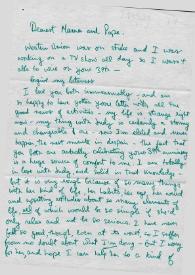 Dearest Mama and Papa,
Western Union was on strike and I was
working on a TV show all day so I wasn't
able to wire on your 39th —
Forgive my lateness
I love you both immeasurably — and am
so happy to have gotten your letter with all the
good news of activities — my life is strange right
now — my thing with Andy is certainly a strong
and changeable — now I'm elated and
happy the next minute in despair — the fact that
you both are actually celebrating your 39th
is a huge source of comfort to me. I am totally
in love with Andy, and solid in that knowledge —
but it is very hard because of so many things
with the kind of life, his habits, his
and attitudes about so many elements of
life, all of which would be so simple if he'd
only relax and not be so serious. I have never
felt so good though, even at its worst, I
no doubt about what I'm doing — but I worry
for him and hope I can help him to a kind of